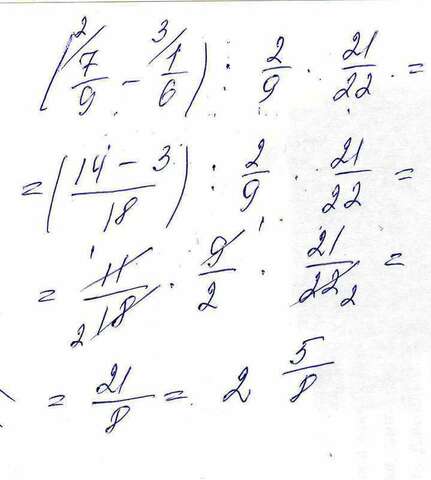 (²/7/9 − ³/1/6) : 2/9 · 21/22 =
= (14 − 3/18) : 2/9 · 21/22 =
= ¹11/₂18 · 9¹/2 · 21/22₂ =
= 21/8 = 2 5/8